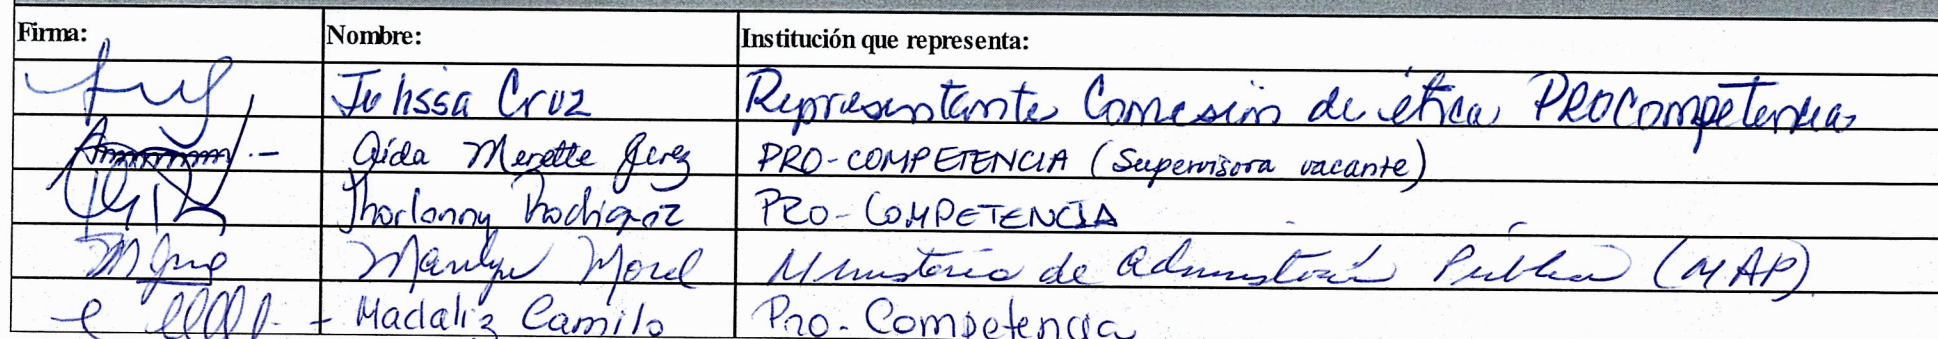 Firma: Nombre: Institución que representa:
Julissa Cruz Representante Comisión de ética PROCompetencia
Aida Merette Jerez PRO-COMPETENCIA (Supervisora vacante)
Jhorlanny Rodriguez PRO-COMPETENCIA
Marilyn Morel Ministerio de Administración Pública (MAP)
Madaliz Camilo Pro-Competencia